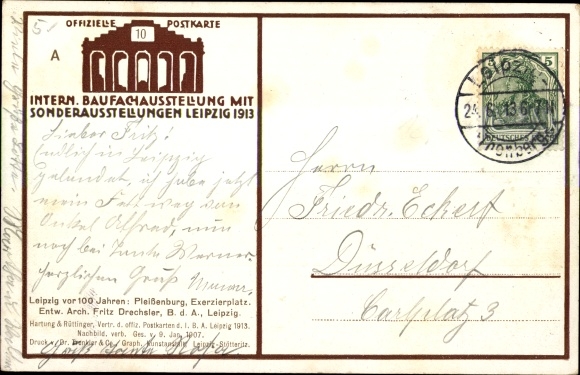 5
OFFIZIELLE POSTKARTE
10
A
INTERN. BAUFACHAUSSTELLUNG MIT
SONDERAUSSTELLUNGEN LEIPZIG 1913
Lieber Fritz!
Endlich in Leipzig
gelandet, ich habe jetzt
mein weg von
Onkel Alfred, nun
noch bei Tante Werner
herzlichen Gruß
Leipzig vor 100 Jahren: Pleißenburg, Exerzierplatz.
Entw. Arch. Fritz Drechsler, B. d. A., Leipzig.
Hartung & Rüttinger, Vertr. d. offiz. Postkarten d. I. B. A. Leipzig 1913.
Nachbild. verb. Ges. v. 9. Jan. 1907.
Druck v. Dr. Trenkler & Co., Graph. Kunstanstalt, Leipzig-Stötteritz.
Gruß Tante Rosa
5
DEUTSCHES
24. 13 6-7N
Herrn
Friedr. Eckert
Düsseldorf
Carlsplatz 3